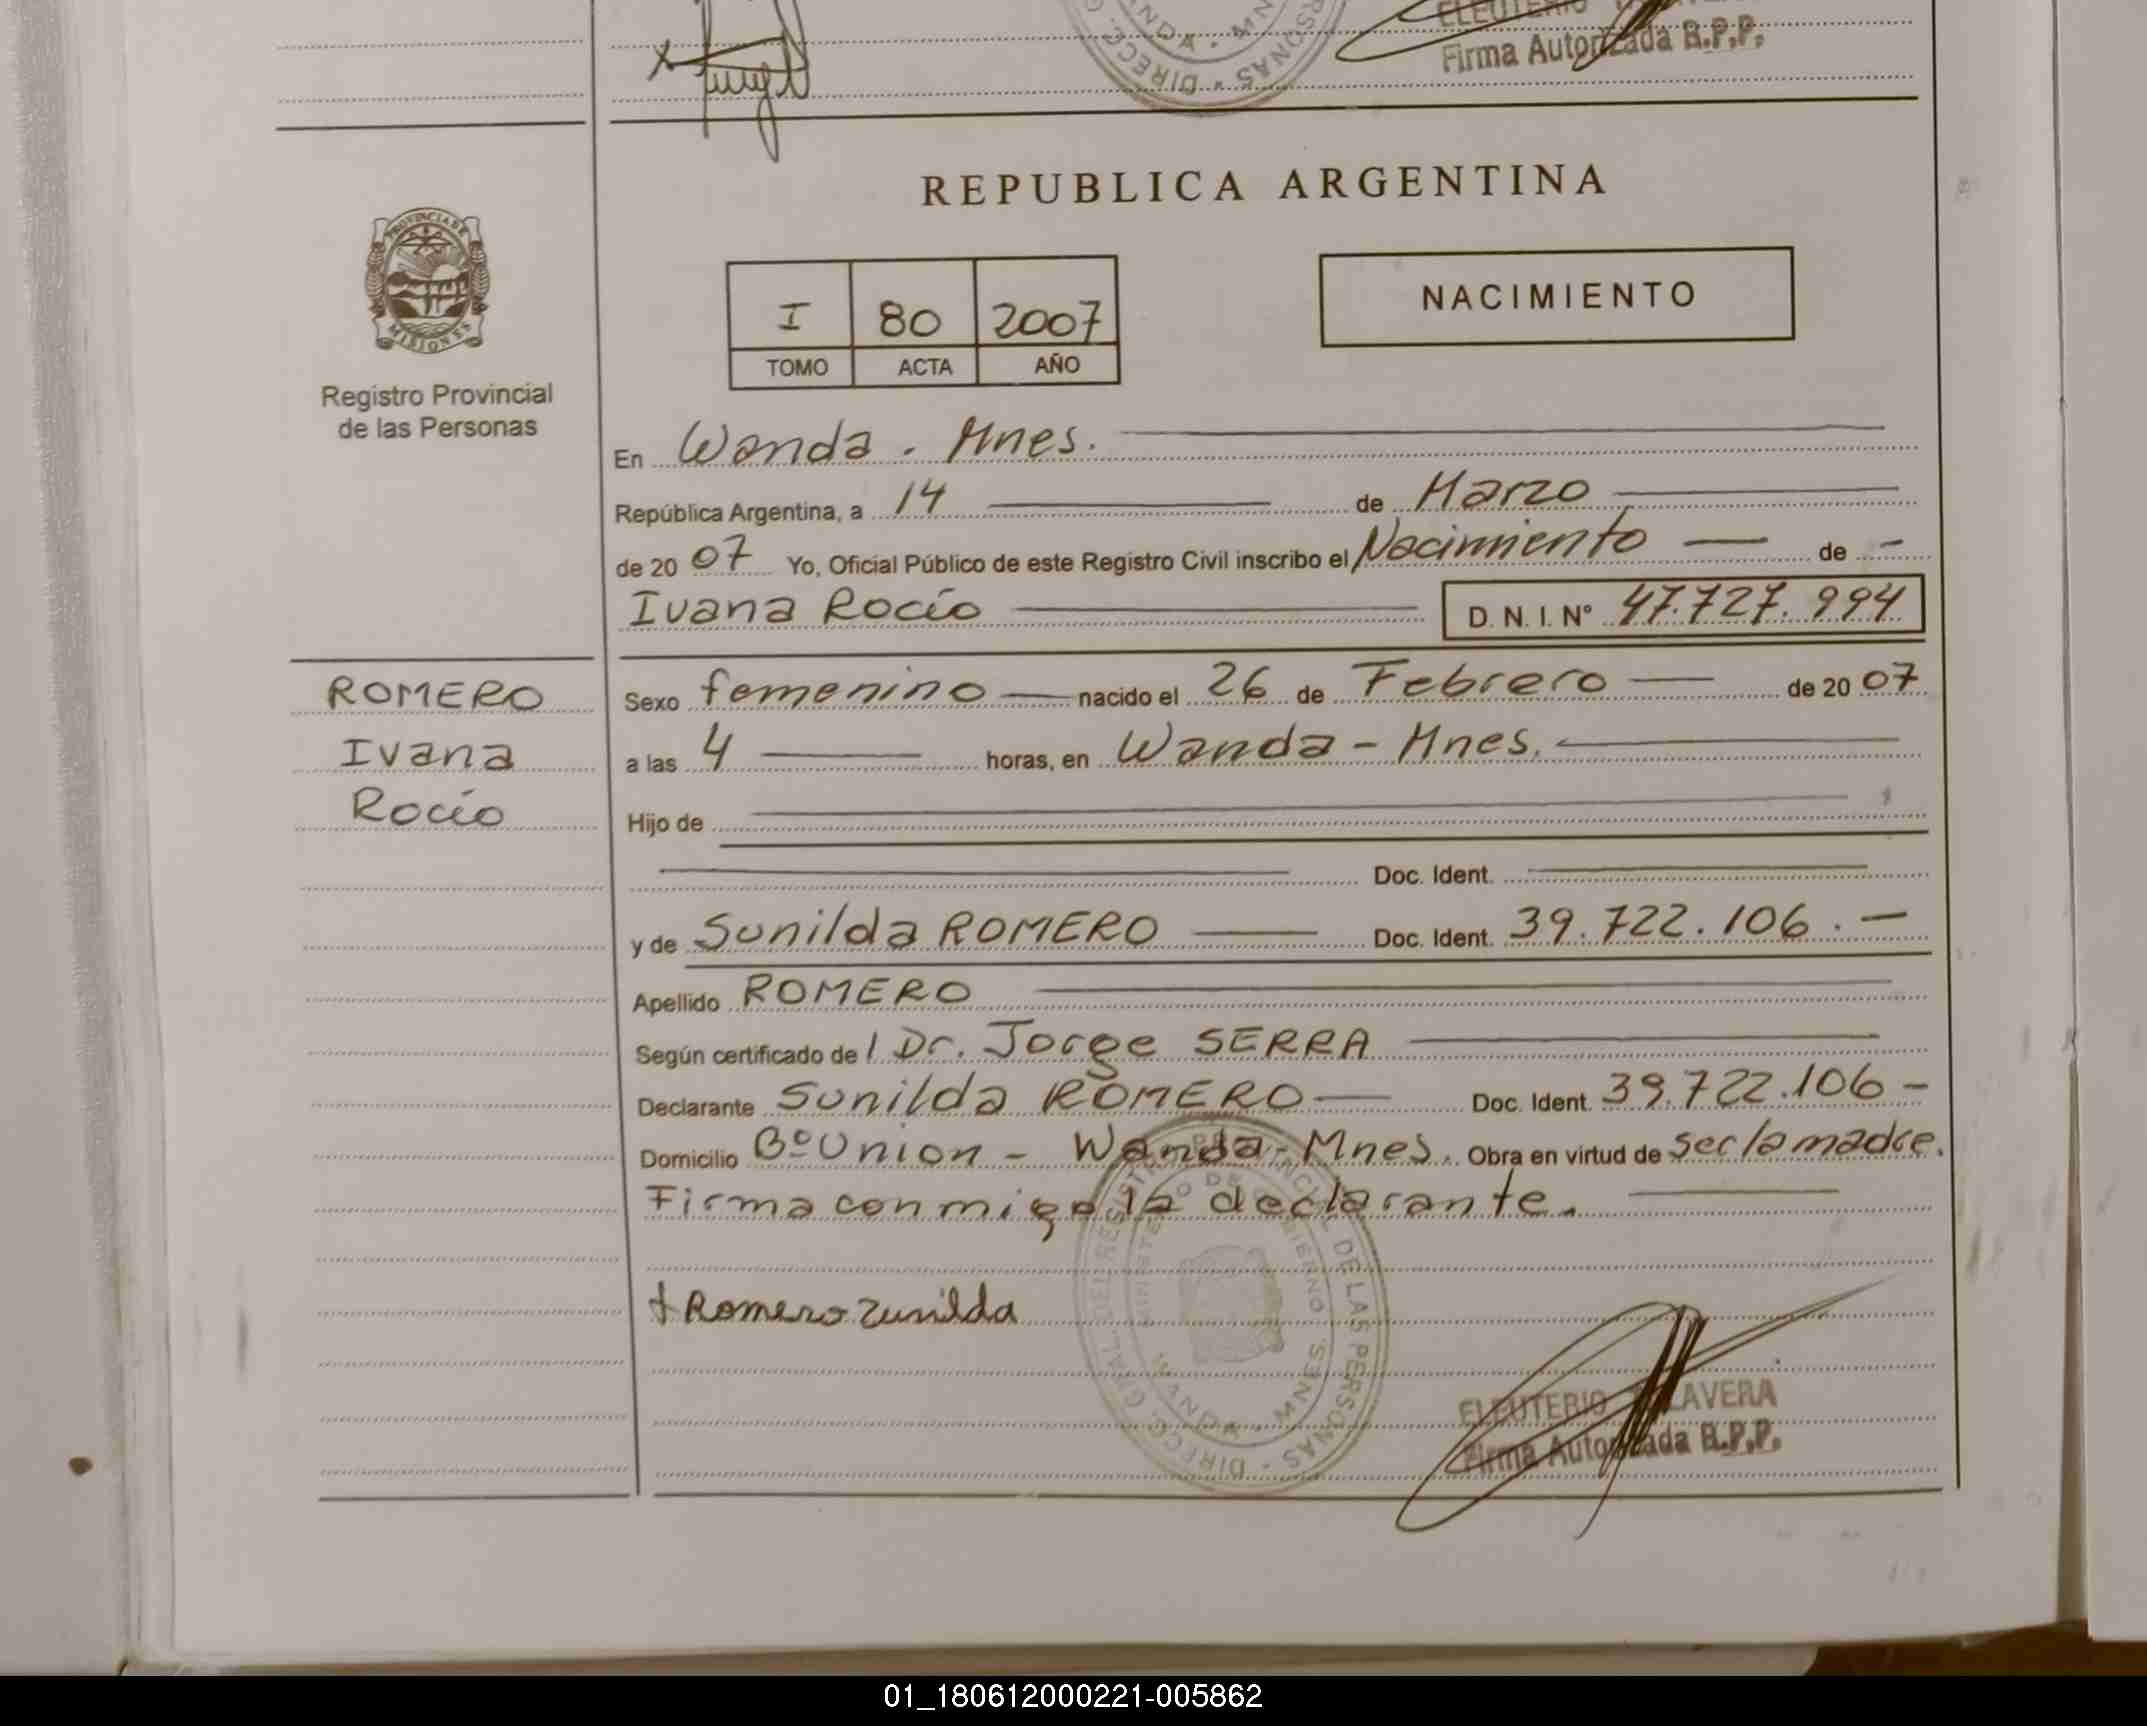 ELEUTERIO
Firma Autorizada R.P.P.
WANDA - MN
DIRECC. G
PERSONAS
REPUBLICA ARGENTINA
PROVINCIA DE
MISIONES
Registro Provincial
de las Personas
I 80 2007
TOMO ACTA AÑO
NACIMIENTO
En Wanda . Mnes.
República Argentina, a 14 de Marzo
de 20 07 Yo, Oficial Público de este Registro Civil inscribo el Nacimiento — de -
Ivana Rocío
D. N. I. N° 47.727.994
ROMERO
Ivana
Rocío
Sexo femenino — nacido el 26 de Febrero — de 20 07
a las 4 horas, en Wanda - Mnes.
Hijo de
Doc. Ident.
y de Sunilda ROMERO — Doc. Ident. 39.722.106.—
Apellido ROMERO
Según certificado del Dr. Jorge SERRA
Declarante Sunilda ROMERO — Doc. Ident. 39.722.106 -
Domicilio Bº Union - Wanda - Mnes. Obra en virtud de ser la madre.
Firma conmigo la declarante.
+ Romero Zunilda
DIRECC. GRAL. DEL REGISTRO PROVINCIAL DE LAS PERSONAS
MINISTERIO DE GOBIERNO
WANDA - MNES.
ELEUTERIO TALAVERA
Firma Autorizada R.P.P.
01_180612000221-005862